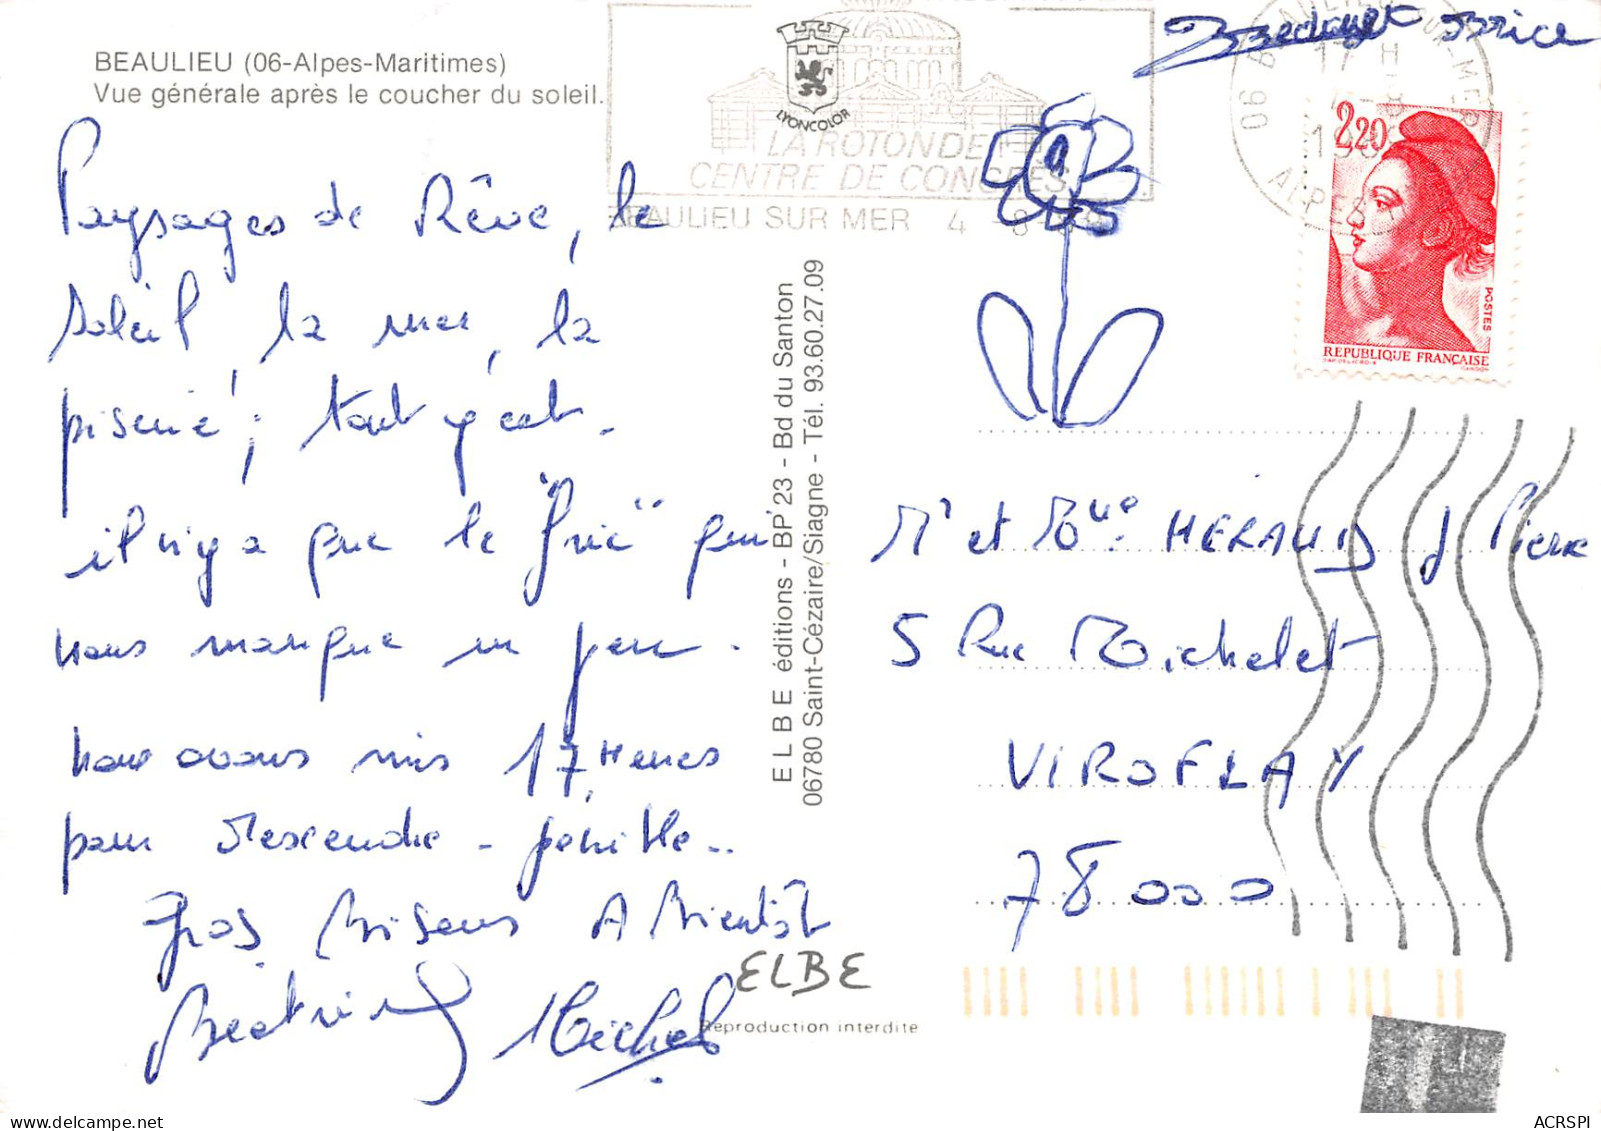 BEAULIEU (06-Alpes-Maritimes)
Vue générale après le coucher du soleil.
Paysages de Rêve, le
soleil la mer, la
piscine ; tout y est.
il n'y a que le "fric" qui
nous manque un peu.
nous avons mis 17 Heures
pour descendre - pénible..
Gros Bisous A Bientôt
Béatrice Michel
LYONCOLOR
LA ROTONDE
CENTRE DE CONGRÈS
BEAULIEU SUR MER 4 8
06 BEAULIEU-SUR-MER
17 H
ALPES
Brice
2,20
POSTES
REPUBLIQUE FRANÇAISE
GANDON
ELBE éditions - BP 23 - Bd du Santon
06780 Saint-Cézaire/Siagne - Tél. 93.60.27.09
Mr et Mme HERAUD J Pierre
5 Rue Michelet
VIROFLAY
78000
ELBE
Reproduction interdite
ACRSPI